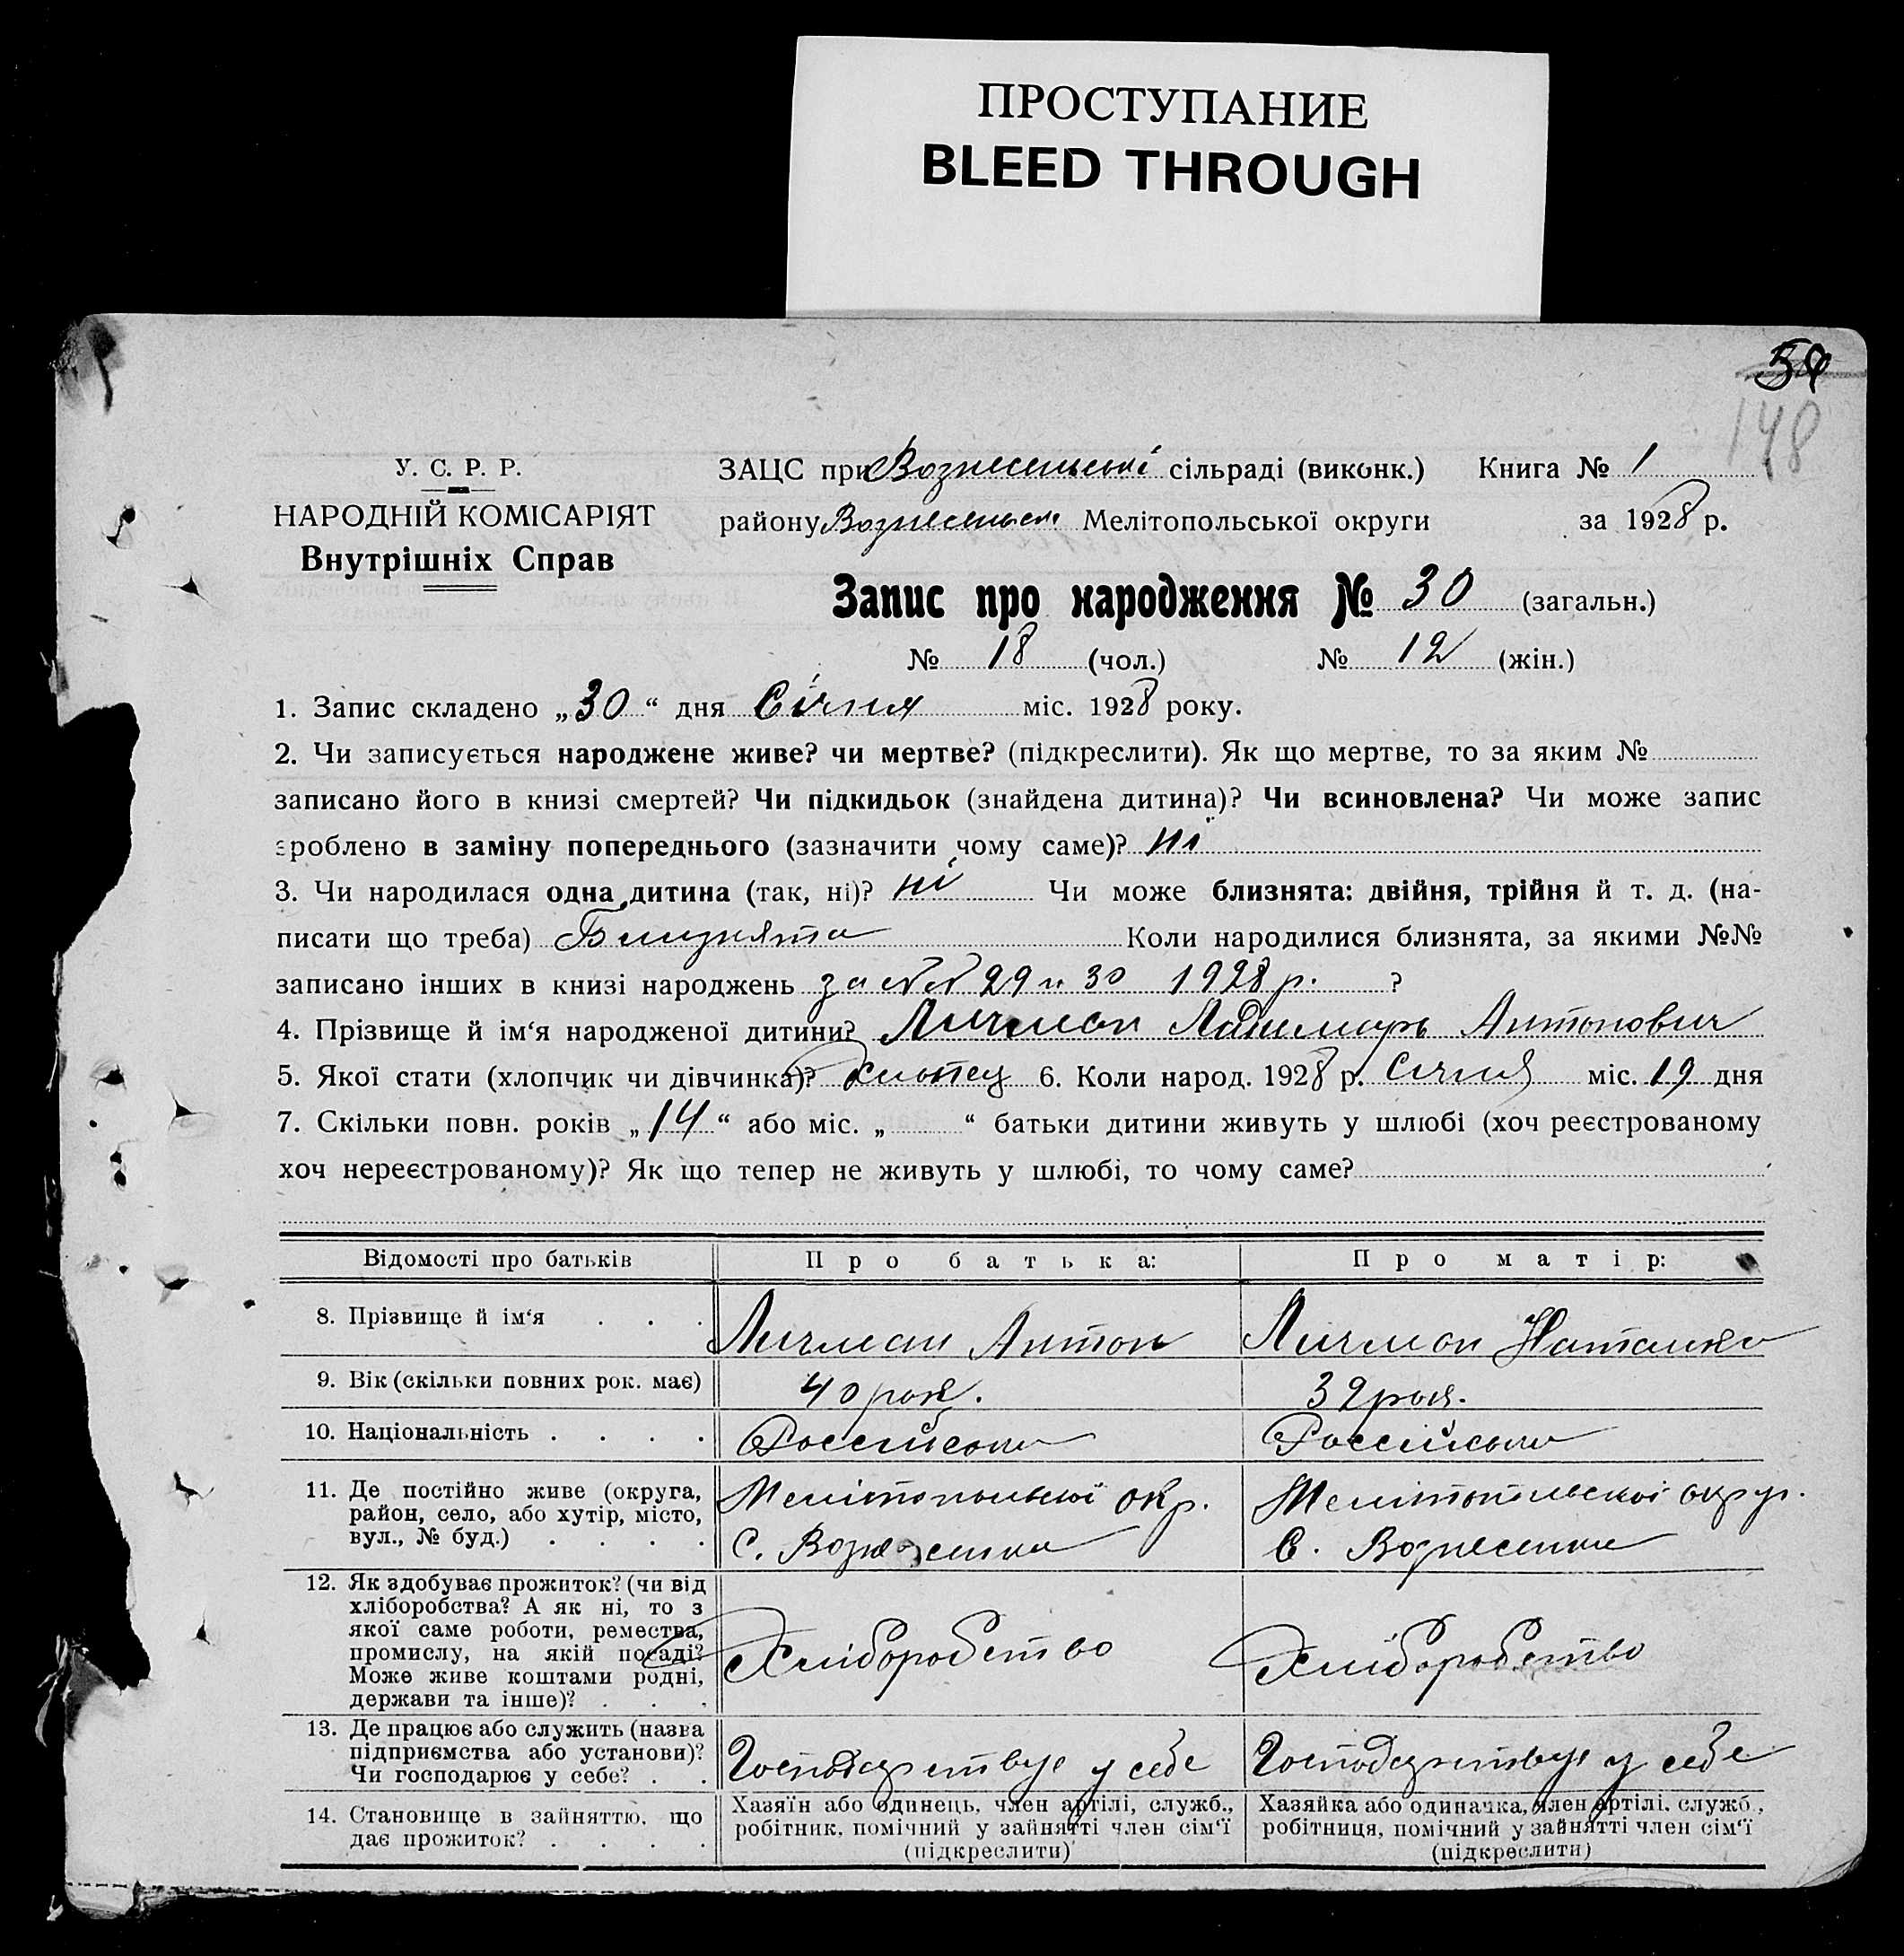 ПРОСТУПАНИЕ
BLEED THROUGH
54
148
У. С. Р. Р.
НАРОДНІЙ КОМІСАРІЯТ
Внутрішніх Справ
ЗАЦС при Вознесенські сільраді (виконк.) Книга № 1
району Вознесенськ Мелітопольської округи за 1928 р.
Запис про народження № 30 (загальн.)
№ 18 (чол.) № 12 (жін.)
1. Запис складено „30“ дня Січня міс. 1928 року.
2. Чи записується народжене живе? чи мертве? (підкреслити). Як що мертве, то за яким №
записано його в книзі смертей? Чи підкидьок (знайдена дитина)? Чи всиновлена? Чи може запис
зроблено в заміну попереднього (зазначити чому саме)? ні
3. Чи народилася одна дитина (так, ні)? ні Чи може близнята: двійня, трійня й т. д. (на-
писати що треба) Близнята Коли народилися близнята, за якими №№
записано інших в книзі народжень за №№ 29 и 30 1928 р. ?
4. Прізвище й ім‘я народженої дитини? Личман Антонович
5. Якої стати (хлопчик чи дівчинка)? Хлопец 6. Коли народ. 1928 р. Січня міс. 19 дня
7. Скільки повн. років „14“ або міс. „ “ батьки дитини живуть у шлюбі (хоч реєстрованому
хоч нереєстрованому)? Як що тепер не живуть у шлюбі, то чому саме?
Відомості про батьків Про батька: Про матір:
8. Прізвище й ім‘я . . . Личман Антон Личман Наталка
9. Вік (скільки повних рок. має) 40 рок. 32 рок.
10. Національність . . . . Російська Російська
11. Де постійно живе (округа, Мелітопольскої окр. Мелітопольскої окр.
район, село, або хутір, місто,
вул., № буд.) . . . . С. Вознесенка С. Вознесенка
12. Як здобуває прожиток? (чи від
хліборобства? А як ні, то з
якої саме роботи, ремества,
промислу, на якій посаді? Хліборобство Хліборобство
Може живе коштами родні,
держави та інше)? . . .
13. Де працює або служить (назва
підприємства або установи)?
Чи господарює у себе? . . Господарствує у себе Господарствує у себе
14. Становище в зайняттю, що
дає прожиток? . . . .
Хазяїн або одинець, член артілі, служб.,
робітник, помічний у зайнятті член сім‘ї
(підкреслити)
Хазяйка або одиначка, член артілі, служб.,
робітниця, помічний у зайнятті член сім‘ї
(підкреслити)